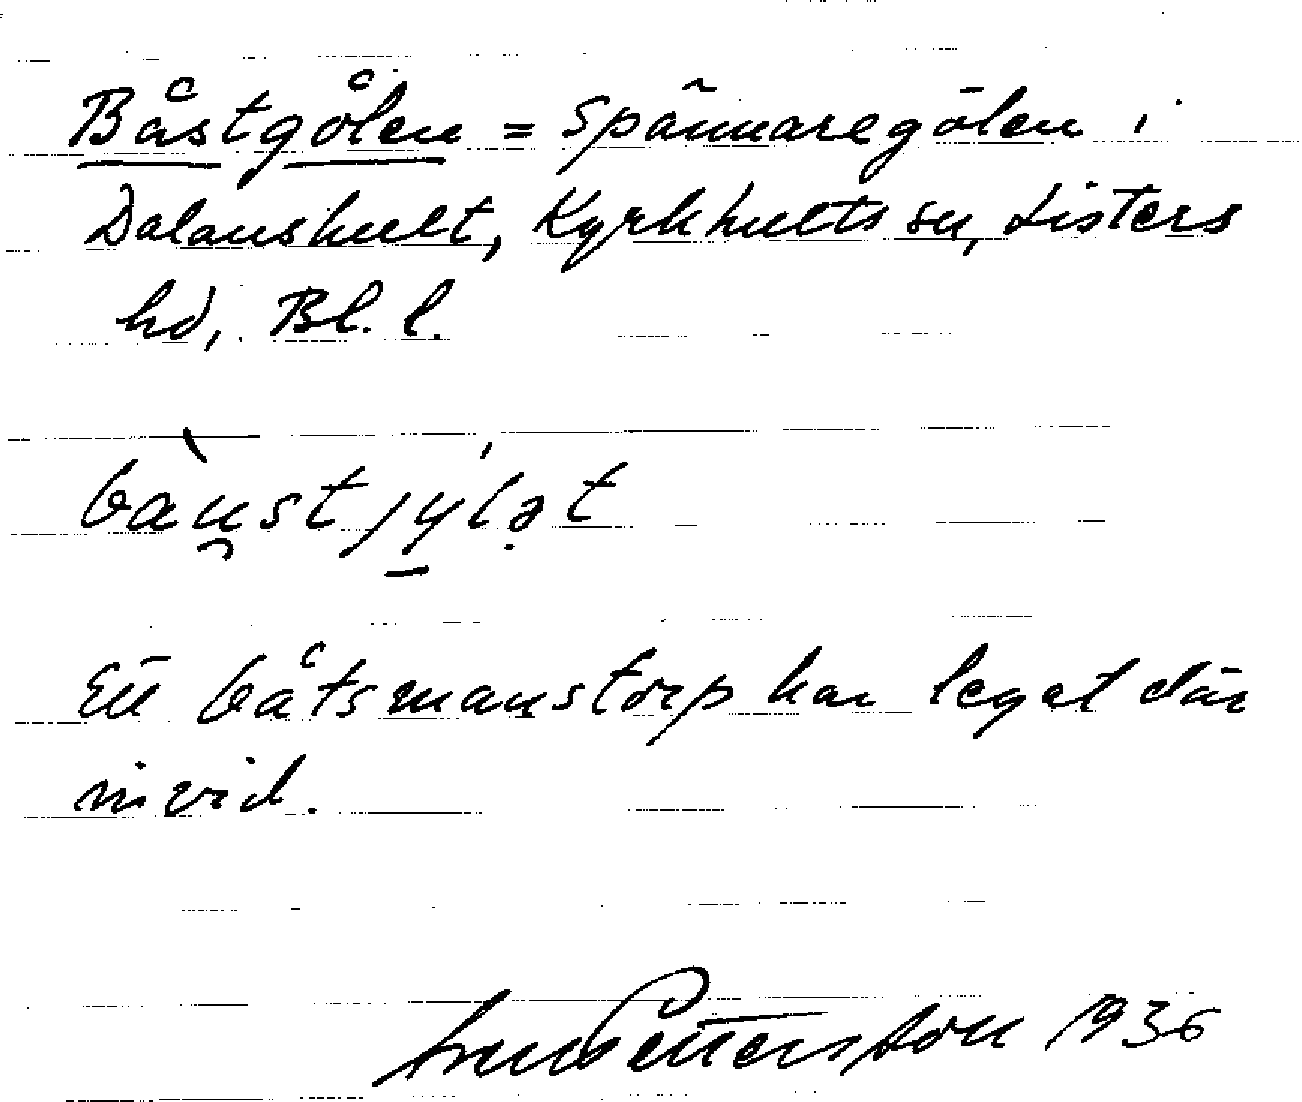 Båstgölen = Spännaregölen i
Dalanshult, Kyrkhults sn, Listers
hd, Bl. l.
bàu̯stjy̱lət
Ett båtsmanstorp har legat där
invid.
Pettersson 1936